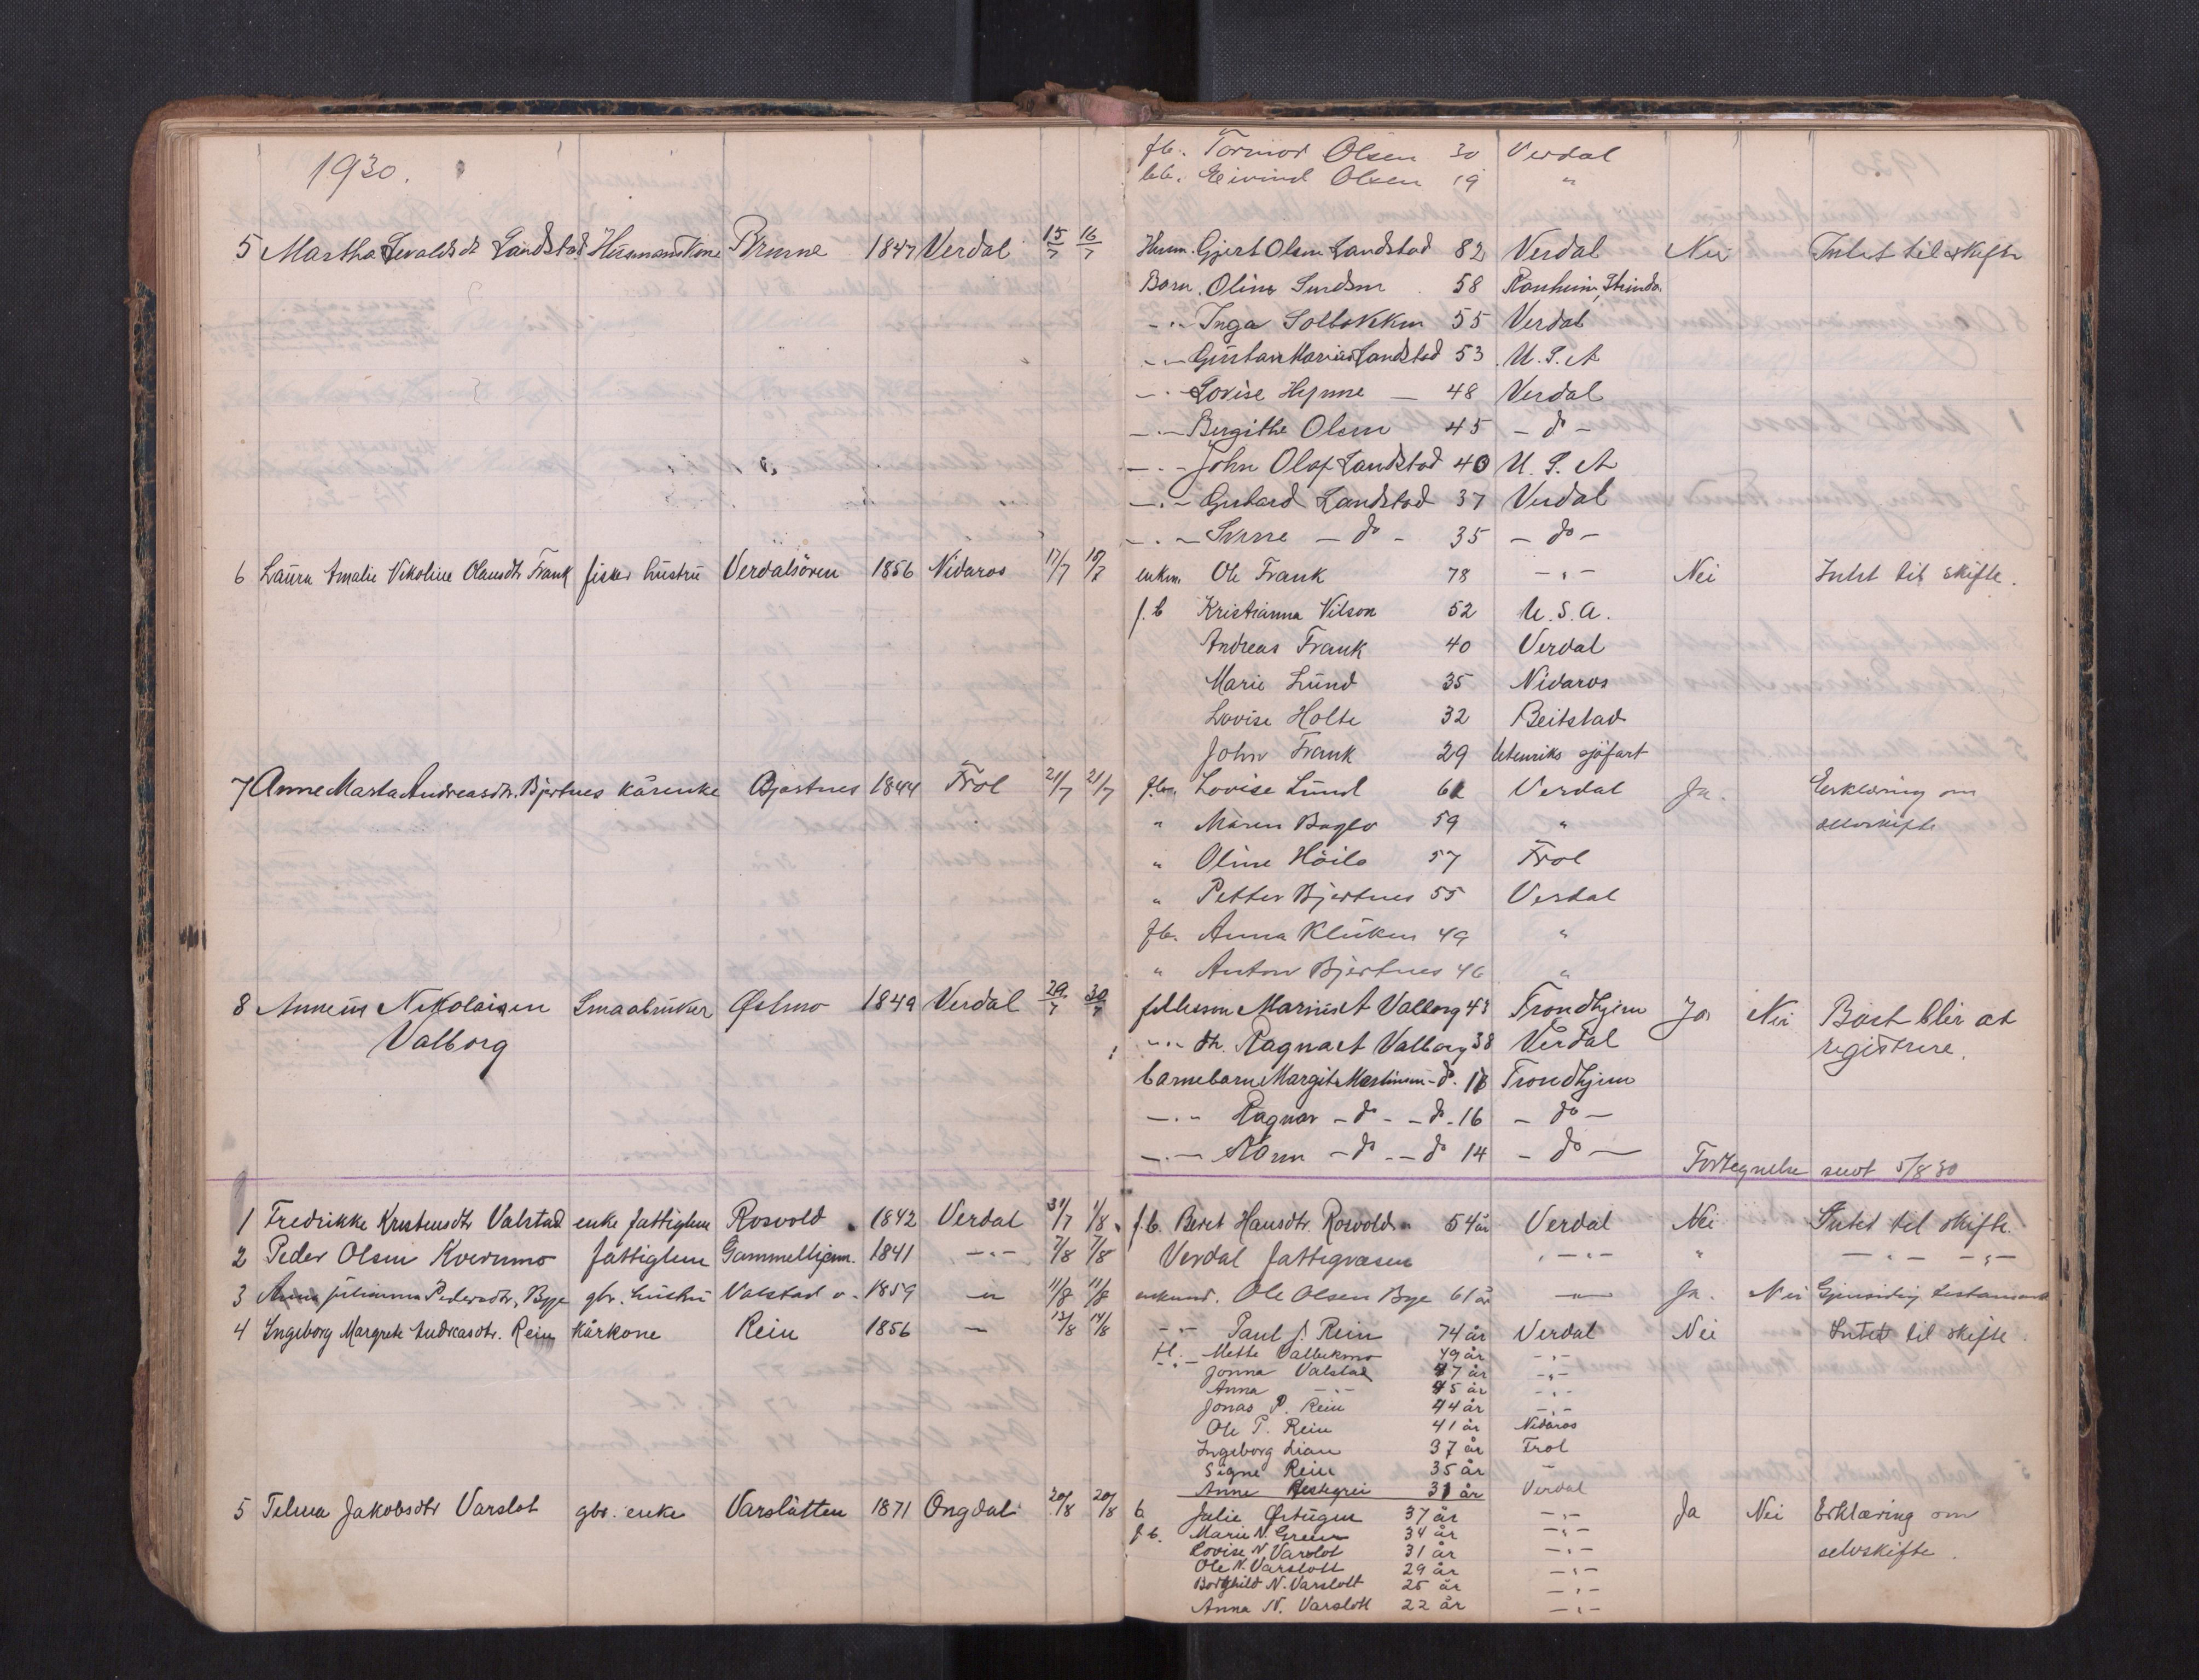 1930.
fb. Tormod Olsen 30 Verdal
bb. Eivind Olsen 19 "
5 Martha Sevaldsdt Landstad Husmandskone Brinne 1847 Verdal 15/7 16/7 Husm. Gjert Olsen Landstad 82 Verdal Nei Intet til skifte
Barn. Oline Sundsen 58 Ranheim, Strinda
-"- Inga Solbakken 55 Verdal
-"- Gustav Marius Landstad 53 U. S. A
-"- Lovise Hynne — 48 Verdal
-"- Bergithe Olsen 45 - do -
-"- John Olaf Landstad 40 U. S. A
-"- Gerhard Landstad 37 Verdal
-"- - do - 35 - do -
6 Laura Amalie Nikoline Olausdtr Frank fisker hustru Verdalsøren 1856 Nidaros 17/7 18/7 enkem. Ole Frank 78 -"- Nei Intet til skifte.
f. b Kristianna Nilson 52 U. S. A.
Andreas Frank 40 Verdal
Marie Lund 35 Nidaros
Lovise Holte 32 Beitstad
John Frank 29 Utenriks sjøfart
7 Anne Marta Andreasdtr. Bjertnes kårenke Bjertnes 1844 Frol 21/7 21/7 fb. Lovise Lund 61 Verdal Ja. Erklæring om
" Maren Baglo 59 " selvskifte
" Oline Höilo 57 Frol
" Petter Bjertnes 55 Verdal
fb. Anna Klüken 49 "
" Anton Bjertnes 46 "
8 Anneus Nikolaisen Smaabruker Østmo 1849 Verdal 29/7 30/7 fellesson Marius A Valborg 43 Trondhjem Ja Nei Boet blir at
Valborg -"- dtr. Ragna A Valborg 38 Verdal registrere.
barnebarn Margit Martinsen -d- 18 Trondhjem
-"- Ragnar - do - - do - 16 - do -
-"- Karen - do - - do 14 - do -
Fortegnelse sendt 5/8 30
1 Fredrikke Kristensdtr Valstad enke fattiglem Rosvold 1842 Verdal 31/7 1/8 f.b. Beret Hansdtr Rosvold 54 år Verdal Nei Intet til skifte.
2 Peder Olsen Kvernmo fattiglem Gammelhjem. 1841 -"- 7/8 7/8 Verdal fattigvæsen -"- " -"- -"-
3 Anna Julianna Pedersdtr, Bye gbr. hustru Valstad v. 1859 -"- 11/8 11/8 enkemd. Ole Olsen Bye 61 år -"- Ja. Nei Gjensidig testament
4 Ingeborg Margrete Andreasdtr. Rein kårkone Rein 1856 — 13/8 14/8 -"- Paul J. Rein 74 år Verdal Nei Intet til skifte.
Mette Valbekmo 49 år -"-
Jonna Valstad 47 år -"-
Anna -"- 45 år -"-
Jonas P. Rein 44 år -"-
Ole P. Rein 41 år Nidaros
Ingeborg Lian 37 år Frol
Signe Rein 35 år -
Anne 31 år Verdal
5 Telma Jakobsdtr Varslot gbr. enke Varslåtten 1871 Ongdal 20/8 20/8 b. Julie Ørtugen 37 år -"- Ja Nei Erklæring om
f. b. Marie N. Green 34 år -"-
Lovise N. Varslot 31 år -"- selvskifte.
Ole N. Varslott 29 år -"-
Borghild N. Varslott 25 år -"-
Anna N. Varslott 22 år -"-